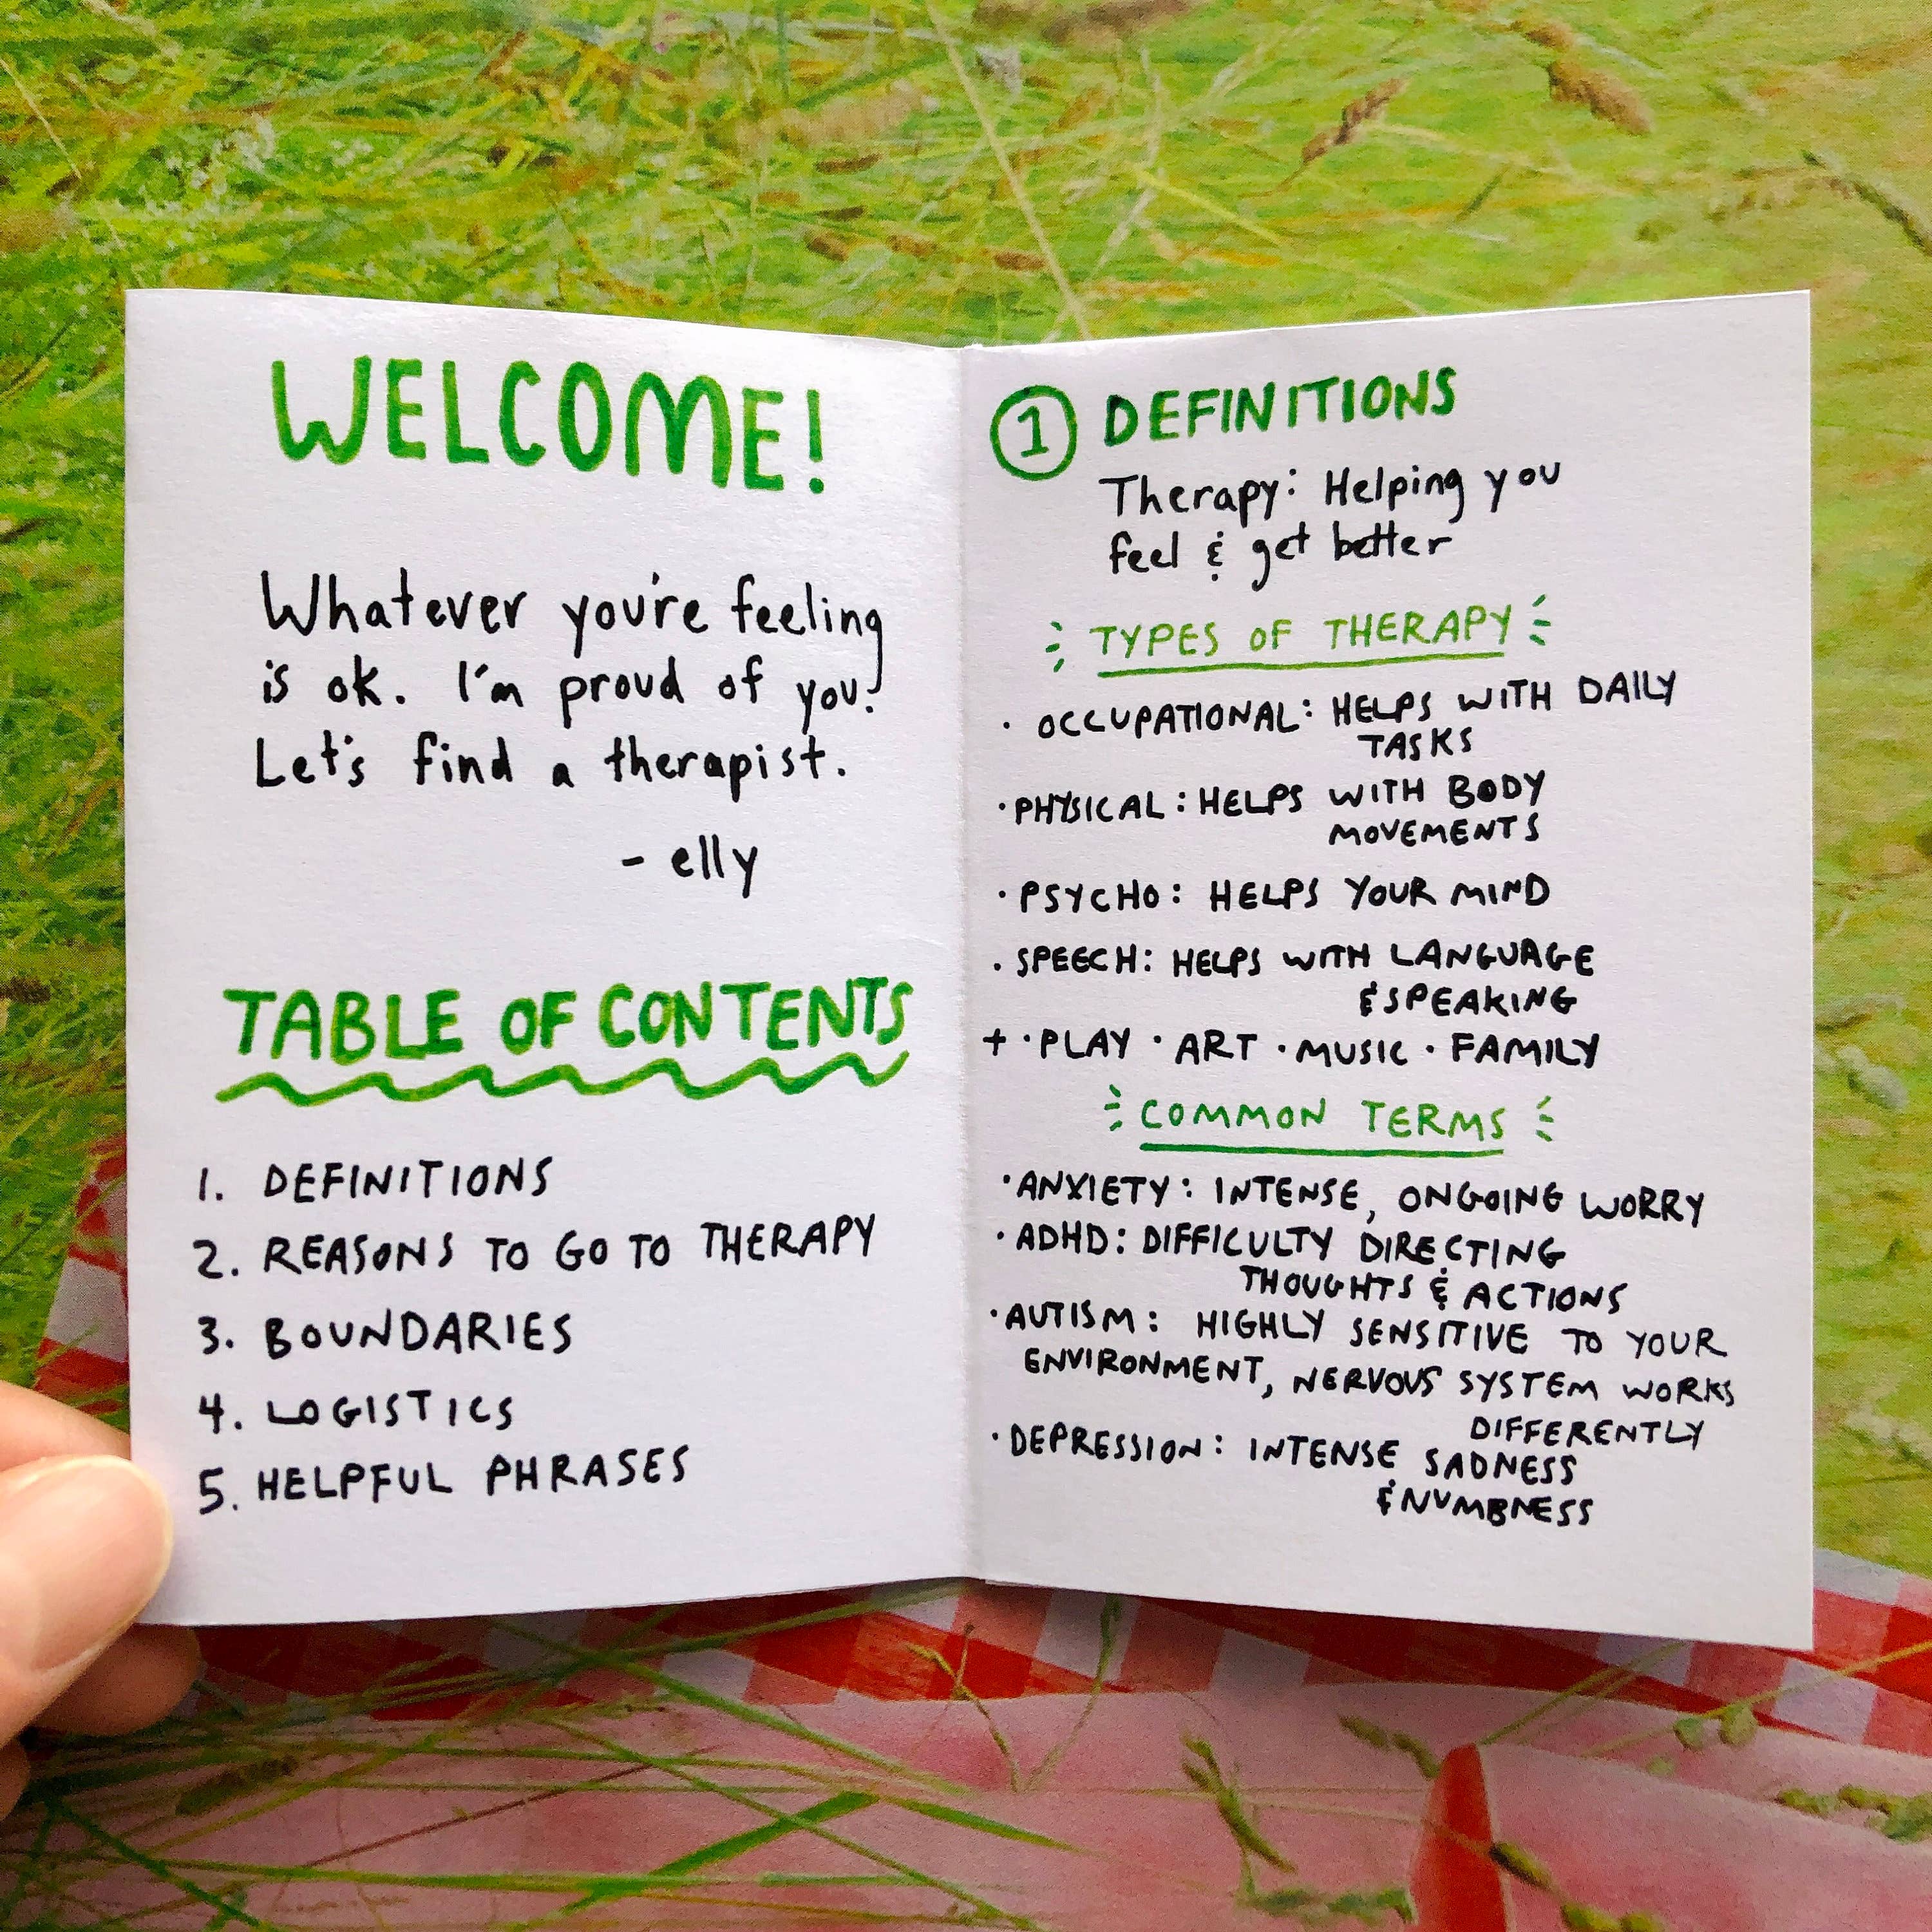 WELCOME!
Whatever you're feeling
is ok. I'm proud of you!
Let's find a therapist.
- elly
TABLE OF CONTENTS
1. DEFINITIONS
2. REASONS TO GO TO THERAPY
3. BOUNDARIES
4. LOGISTICS
5. HELPFUL PHRASES
1 DEFINITIONS
Therapy: Helping you
feel & get better
TYPES OF THERAPY
· OCCUPATIONAL: HELPS WITH DAILY
TASKS
· PHYSICAL: HELPS WITH BODY
MOVEMENTS
· PSYCHO: HELPS YOUR MIND
· SPEECH: HELPS WITH LANGUAGE
& SPEAKING
+ · PLAY · ART · MUSIC · FAMILY
COMMON TERMS
· ANXIETY: INTENSE, ONGOING WORRY
· ADHD: DIFFICULTY DIRECTING
THOUGHTS & ACTIONS
· AUTISM: HIGHLY SENSITIVE TO YOUR
ENVIRONMENT, NERVOUS SYSTEM WORKS
DIFFERENTLY
· DEPRESSION: INTENSE SADNESS
& NUMBNESS